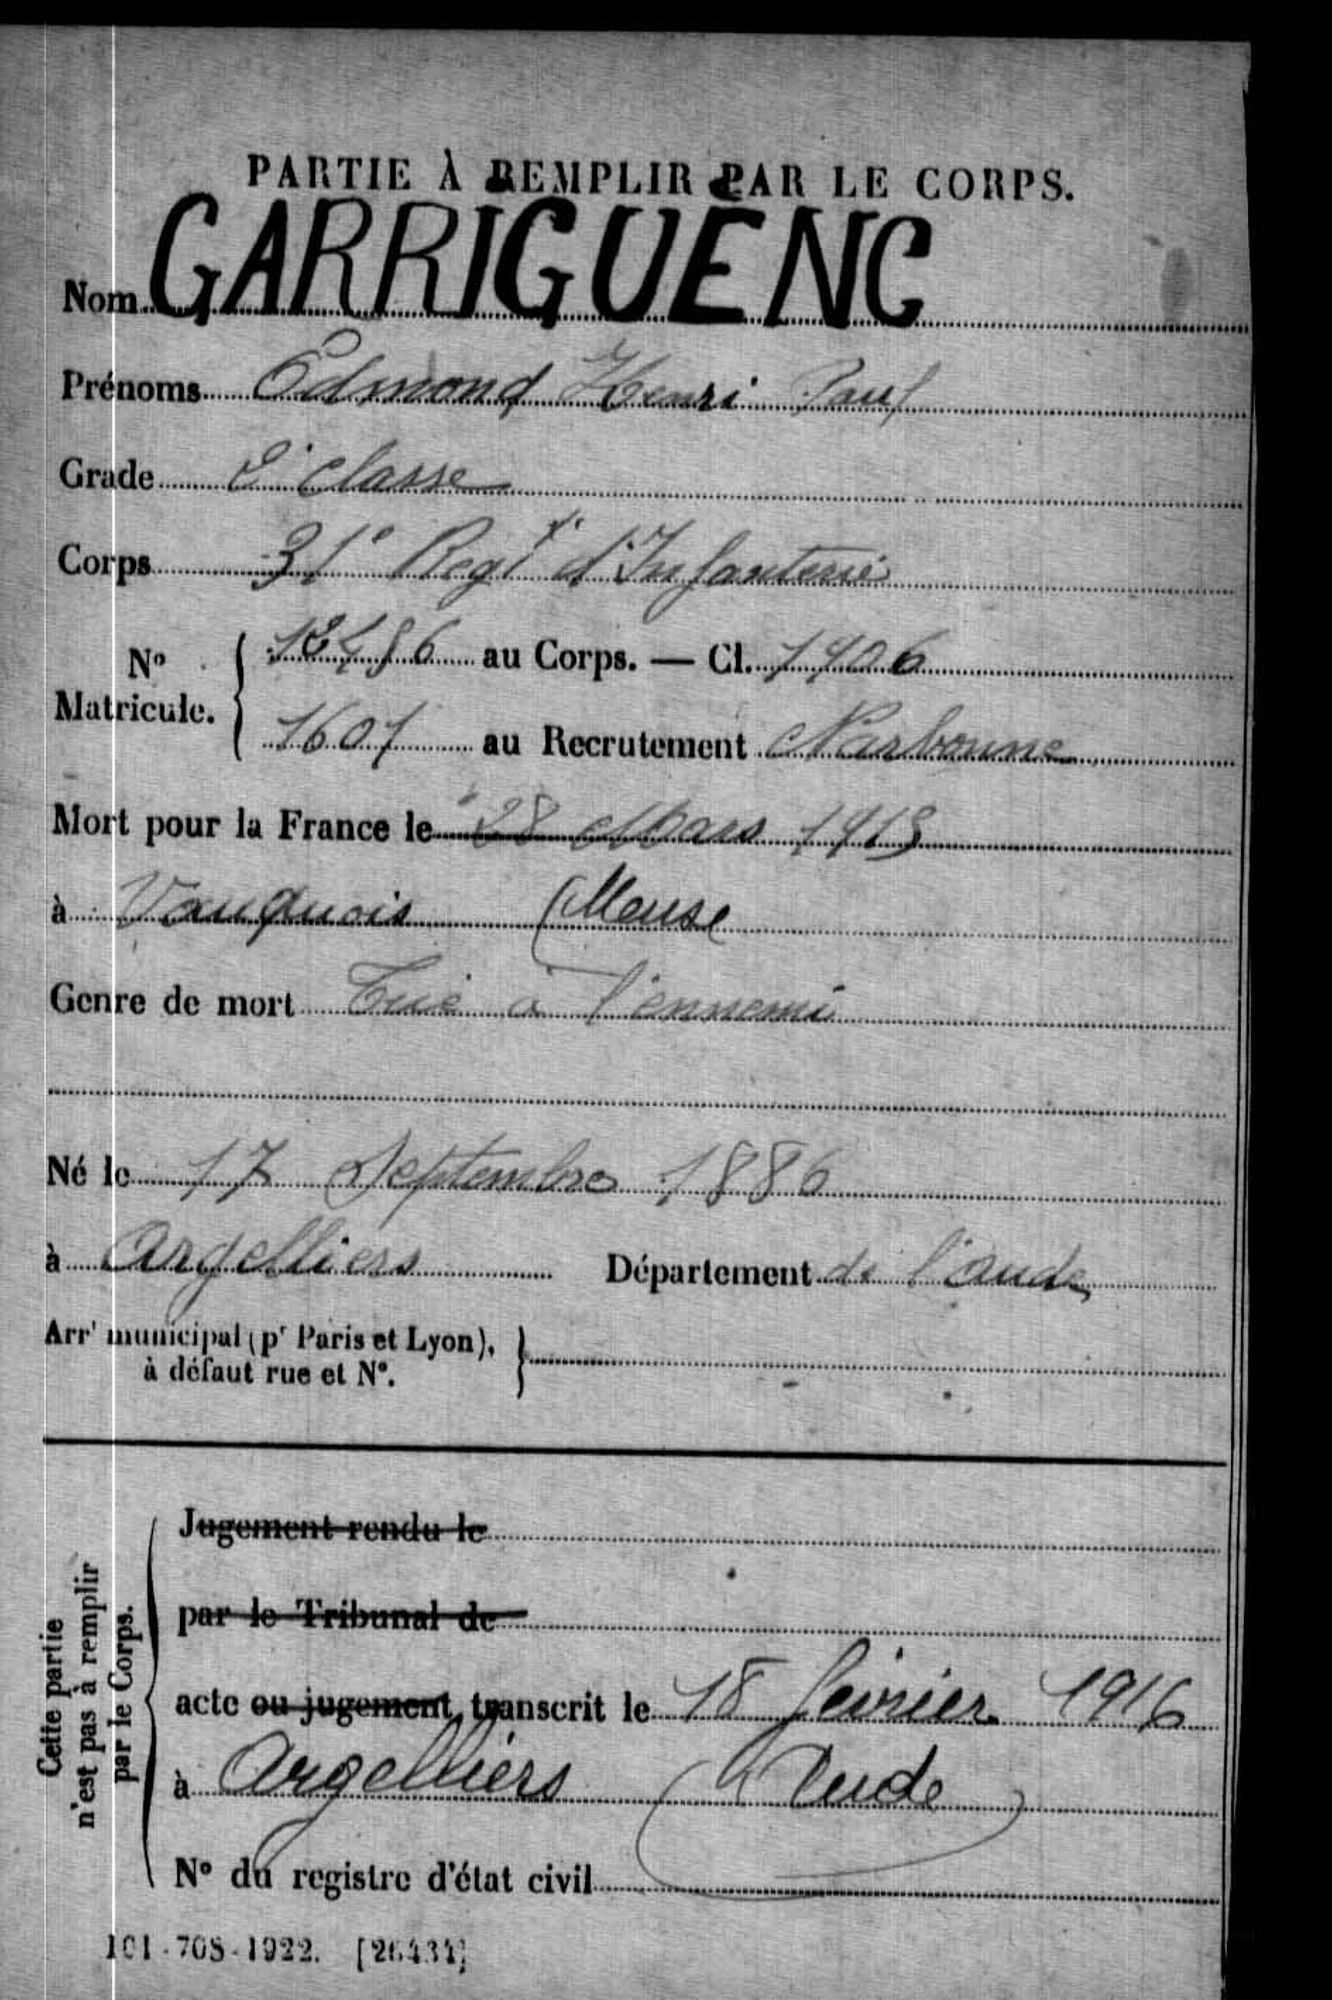 PARTIE À REMPLIR PAR LE CORPS.
Nom GARRIGUENC
Prénoms Edmond Henri Paul
Grade 2e classe
Corps 31e Regt d'Infanterie
No Matricule. { au Corps. — Cl. 1906
1601 au Recrutement Narbonne
Mort pour la France le 28 Mars 1915
à Vauquois (Meuse
Genre de mort Tué à l'ennemi
Né le 17 Septembre 1886
à Argelliers Département de l'Aude
Arrt municipal (pr Paris et Lyon), à défaut rue et No. }
Cette partie n'est pas à remplir par le Corps.
Jugement rendu le
par le Tribunal de
acte ou jugement transcrit le 18 février 1916
à Argelliers (Aude)
No du registre d'état civil
101-708-1922. [26434]